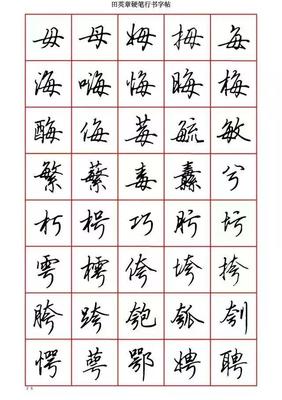 田英章硬笔行书字帖
毋母姆拇每
海嗨悔晦梅
酶侮莓毓敏
繁蘩毒纛兮
朽枵巧肟圬
雩樗侉垮挎
胯跨匏瓠刳
愕萼鄂娉聘